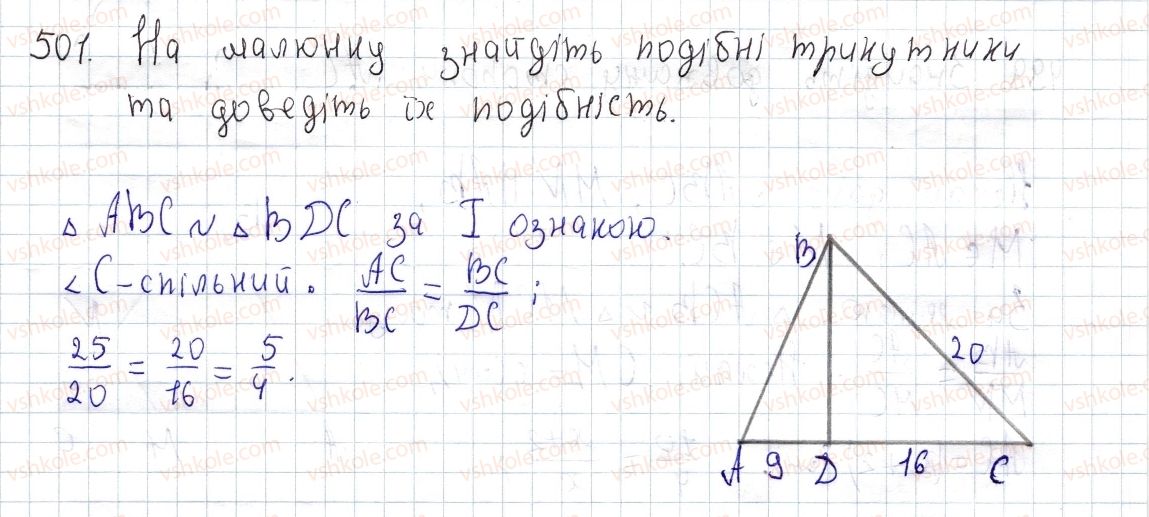 501. На малюнку знайдіть подібні трикутники
та доведіть їх подібність.
△ ABC ~ △ BDC за I ознакою.
∠C - спільний. AC/BC = BC/DC ;
25/20 = 20/16 = 5/4.
B
20
A 9 D 16 C